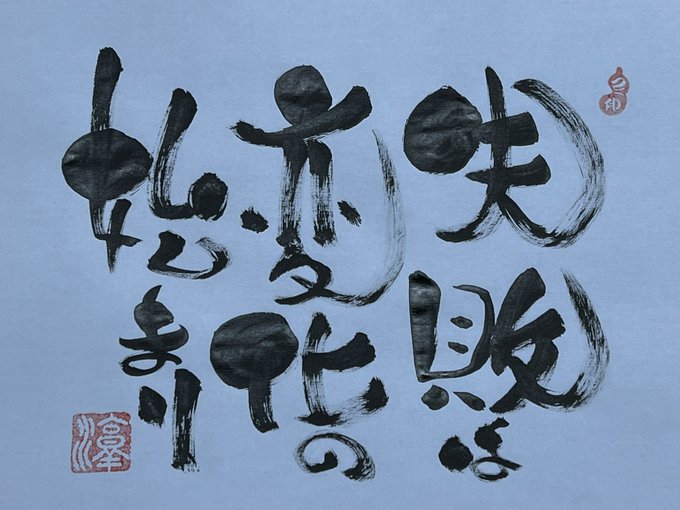 失敗は
変化の
始まり
淳